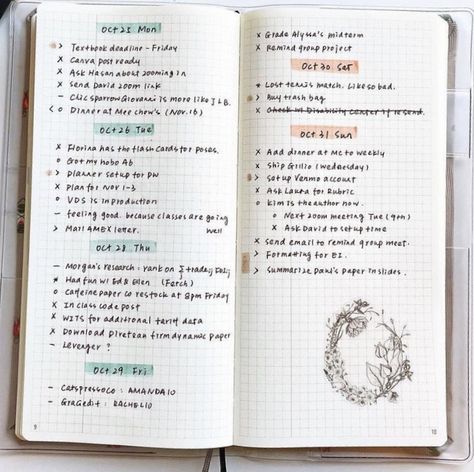 Oct 25 Mon
> Textbook deadline - Friday
x Canva post ready
x Ask Hasan about zooming in
x Send David zoom link
- Clic sparrow Giovanni is more like J.B.
< o Dinner at Mee chow's (Nov. 16)
Oct 26 Tue
x Florina has the flash cards for poses.
o Got my hobo A6
> Planner setup for PW
x Plan for Nov 1-3
o VDS is in production
- feeling good. because classes are going well
> Mail AMEX letter.
Oct 28 Thu
- Morgan's research: rank on
* Had fun w/ Ed & Ellen (Fetch)
o Caffeine paper co restock at 8pm Friday
x In class code post
x WITS for additional tariff data
x Download firm dynamic paper
- Levenger ?
Oct 29 Fri
- Catspressoco : AMANDA10
- Gracedit : RACHEL10
9
x Grade Alyssa's midterm
x Remind group project
Oct 30 Sat
* Lost tennis match. Like so bad.
> Buy trash bag
x Check w/ Disability Center if resend.
Oct 31 Sun
x Add dinner at Mc to weekly
x Ship Grillo (Wednesday)
> Setup Venmo account
x Ask Laura for Rubric
o Kim is the author now.
o Next zoom meeting Tue (9th)
x Ask David to set up time
x send email to remind group meet.
> Formatting for EI.
> Summarize Dani's paper in slides.
10